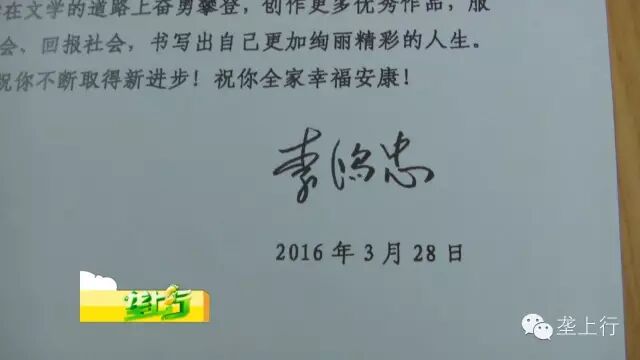 在文学的道路上奋勇攀登，创作更多优秀作品，服
会、回报社会，书写出自己更加绚丽精彩的人生。
祝你不断取得新进步！祝你全家幸福安康！
李鸿忠
2016 年 3 月 28 日
垄上行
垄上行